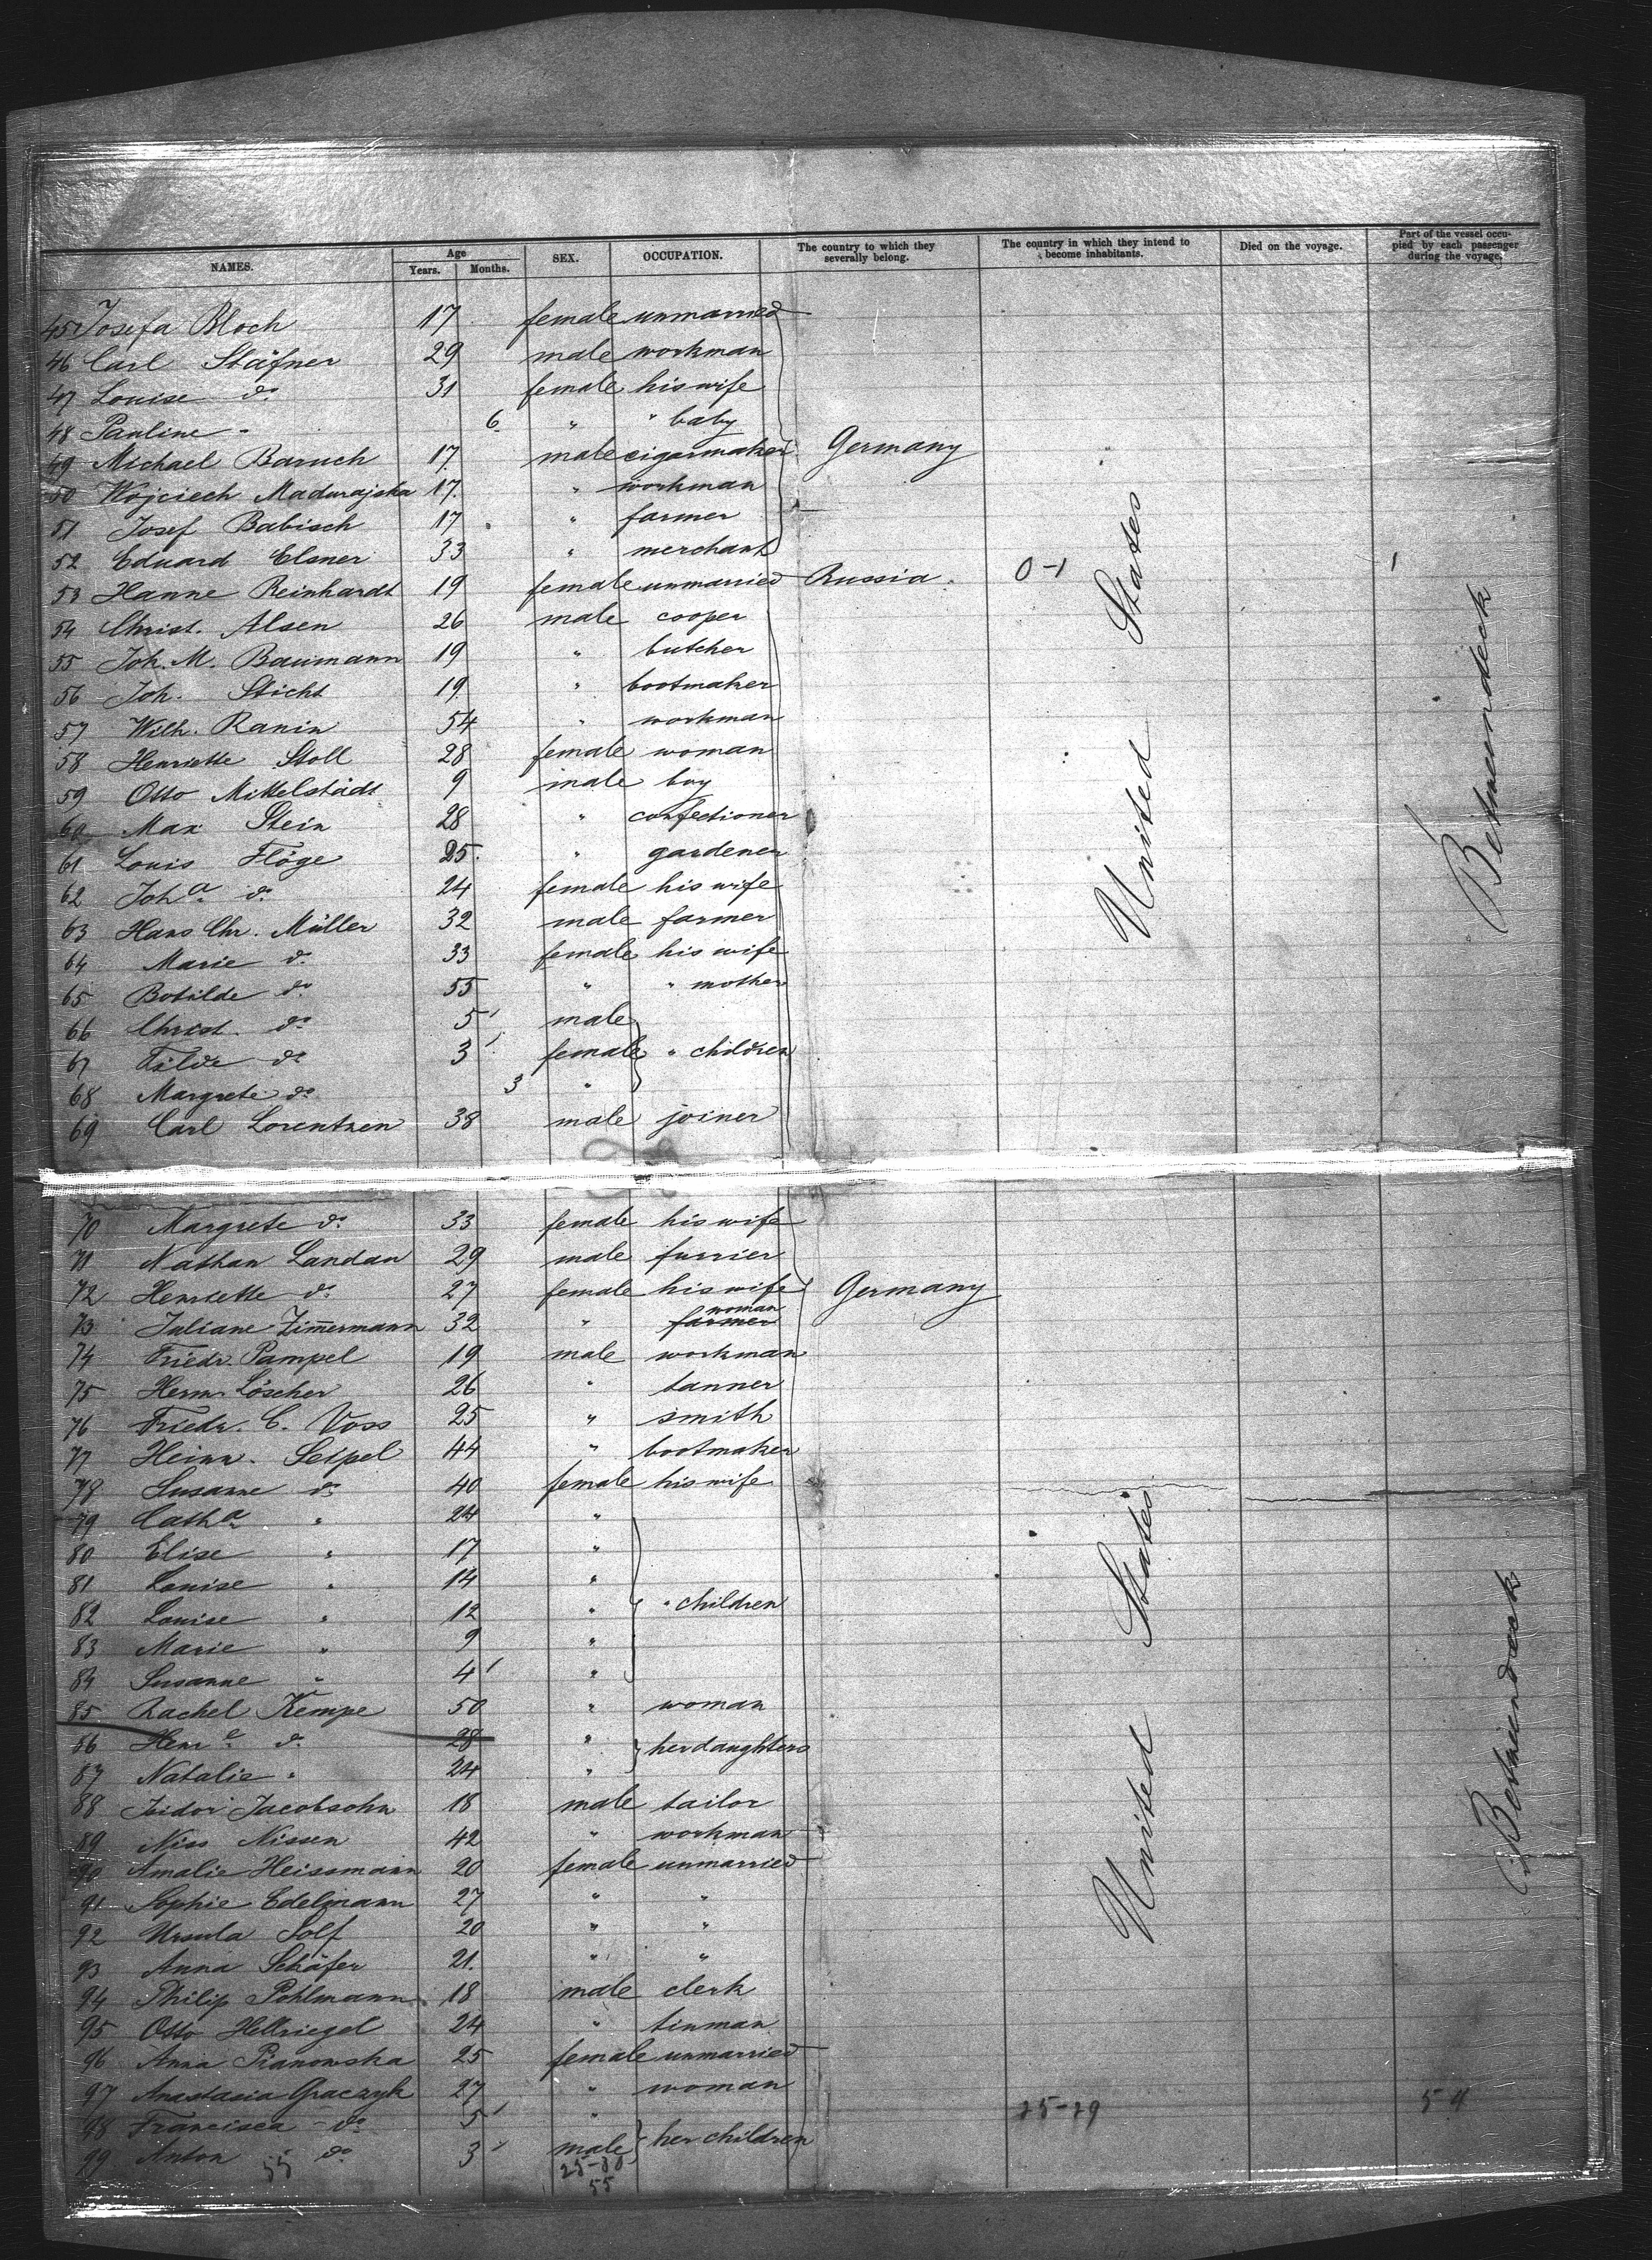 NAMES. Age Years. Months. SEX. OCCUPATION. The country to which they severally belong. The country in which they intend to become inhabitants. Died on the voyage. Part of the vessel occupied by each passenger during the voyage.
45 Josefa Bloch 17 female unmarried
46 Carl Stäfner 29 male workman
47 Louise do 31 female his wife
48 Pauline " 6 " " baby
49 Michael Baruch 17 male cigarmaker Germany
50 Wojciech Madurajska 17 " workman
51 Josef Babisch 17 " farmer
52 Eduard Elsner 33 " merchant
53 Hanne Reinhardt 19 female unmarried Russia. 0-1 1
54 Christ. Alsen 26 male cooper
55 Joh. M. Baumann 19 " butcher
56 Joh. Sticht 19 " bootmaker
57 Wilh. Ranin 54 " workman
58 Henriette Stoll 28 female woman
59 Otto Mittelstädt 9 male boy
60 Max Stein 28 " confectioner
61 Louis Flöge 25 " gardener
62 Joha. do 24 female his wife
63 Hans Chr. Müller 32 male farmer
64 Marie do 33 female his wife
65 Botilde do 55 " " mother
66 Christ. do 5 male
67 Tilde do 3 female " children
68 Margrete do 3 "
69 Carl Lorentzen 38 male joiner
United States
Betweendeck
70 Margrete do 33 female his wife
71 Nathan Landau 29 male furrier
72 Henriette do 27 female his wife Germany
73 Juliane Zimermann 32 " farmer woman
74 Friedr. Pampel 19 male workman
75 Herm. Löscher 26 " tanner
76 Friedr. C. Voss 25 " smith
77 Heinr. Seipel 44 " bootmaker
78 Susanne do 40 female his wife
79 Catha " 24 "
80 Elise " 17 "
81 Louise " 14 "
82 Louise " 12 " " children
83 Marie " 9 "
84 Susanne " 4 "
85 Rachel Kempe 50 " woman
86 Henre do 28 " her daughters
87 Natalie " 24 "
88 Isidor Jacobsohn 18 male tailor
89 Niss Nissen 42 " workman
90 Amalie Heissmann 20 female unmarried
91 Sophie Edelmann 27 " "
92 Ursula Solf 20 " "
93 Anna Schäfer 21. " "
94 Philip Pohlmann 18 male clerk
95 Otto Hellriegel 24 " tinman
96 Anna Pianowska 25 female unmarried
97 Anastasia Graczyk 27 " woman
98 Francisca do 5 " 25-29 54
99 Anton do 3 male her children
55 55
United States
Betweendeck